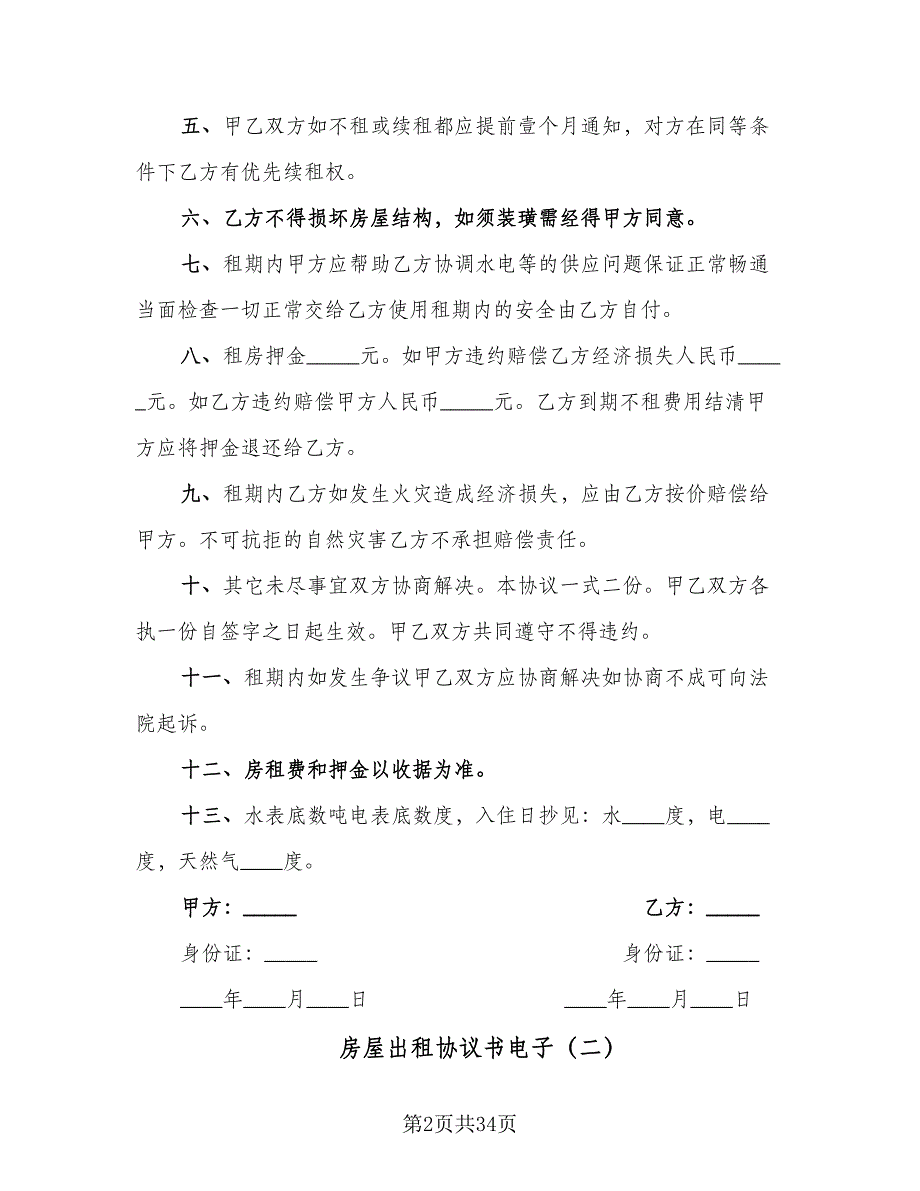 五、甲乙双方如不租或续租都应提前壹个月通知，对方在同等条
件下乙方有优先续租权。
六、乙方不得损坏房屋结构，如须装璜需经得甲方同意。
七、租期内甲方应帮助乙方协调水电等的供应问题保证正常畅通
当面检查一切正常交给乙方使用租期内的安全由乙方自付。
八、租房押金_____元。如甲方违约赔偿乙方经济损失人民币____
_元。如乙方违约赔偿甲方人民币_____元。乙方到期不租费用结清甲
方应将押金退还给乙方。
九、租期内乙方如发生火灾造成经济损失，应由乙方按价赔偿给
甲方。不可抗拒的自然灾害乙方不承担赔偿责任。
十、其它未尽事宜双方协商解决。本协议一式二份。甲乙双方各
执一份自签字之日起生效。甲乙双方共同遵守不得违约。
十一、租期内如发生争议甲乙双方应协商解决如协商不成可向法
院起诉。
十二、房租费和押金以收据为准。
十三、水表底数吨电表底数度，入住日抄见：水____度，电____
度，天然气____度。
甲方：_____ 乙方：_____
身份证：_____ 身份证：_____
____年____月____日 ____年____月____日
房屋出租协议书电子（二）
第2页共34页